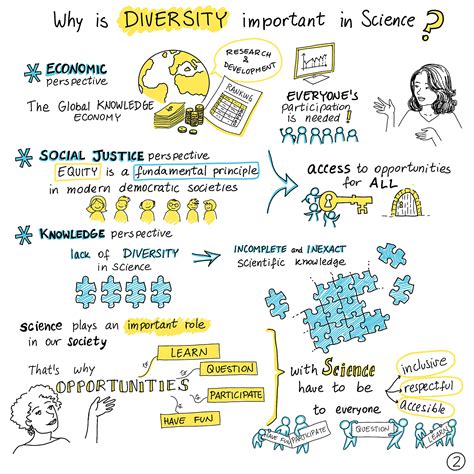 Why is DIVERSITY important in Science?
* ECONOMIC
perspective
The Global KNOWLEDGE
ECONOMY
RESEARCH
&
DEVELOPMENT
RANKING
EVERYONE'S
participation
is needed!
* SOCIAL JUSTICE perspective
EQUITY is a fundamental principle
in modern democratic societies
access to opportunities
for ALL
* KNOWLEDGE perspective
lack of DIVERSITY
in science
INCOMPLETE and INEXACT
scientific knowledge
science plays an important role
in our society
That's why
OPPORTUNITIES
LEARN
QUESTION
PARTICIPATE
HAVE FUN
with Science
have to be
to everyone
inclusive
respectful
accesible
HAVE FUN
PARTICIPATE
QUESTION
LEARN
2